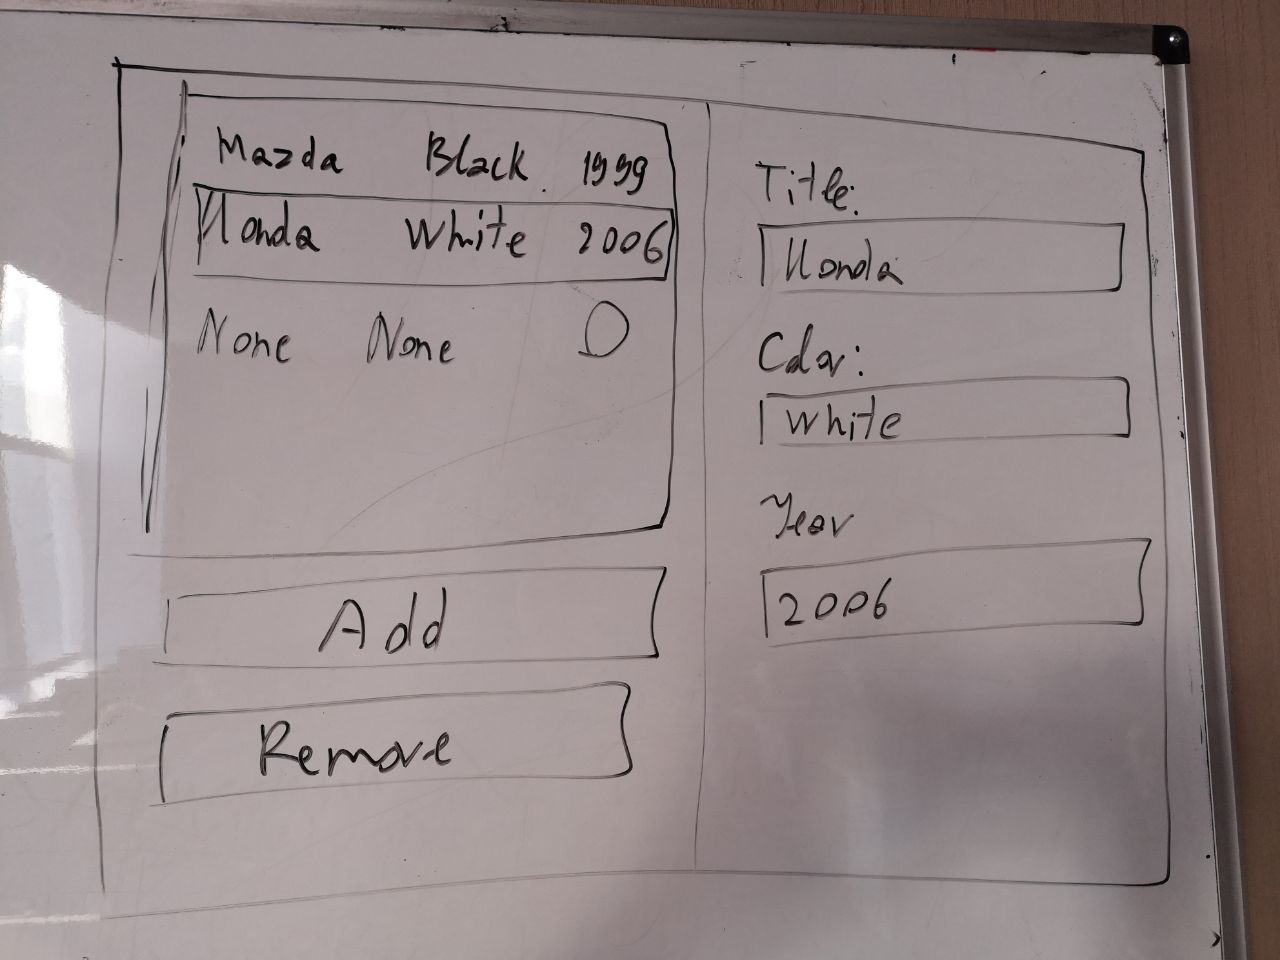 Mazda Black 1999
Honda White 2006
None None 0
Add
Remove
Title:
Honda
Color:
White
Year
2006